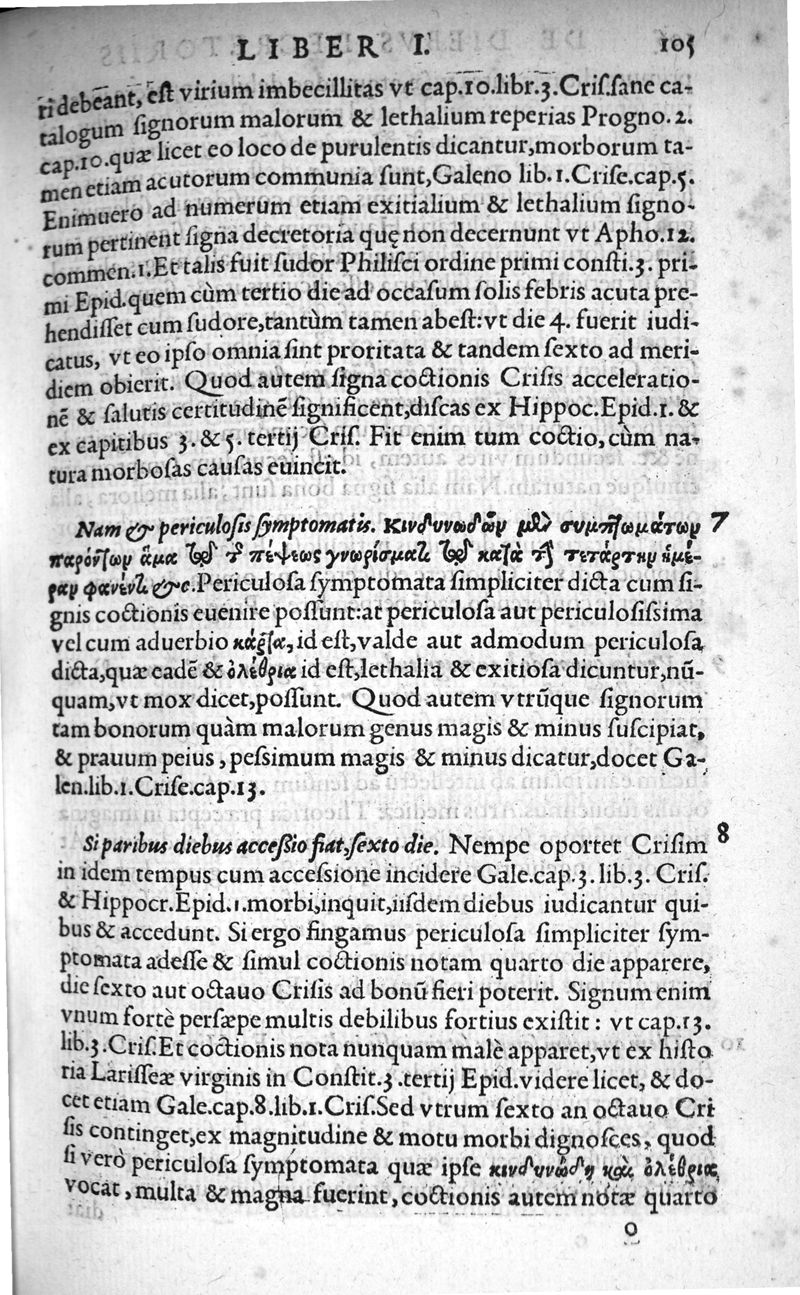 LIBER I. 105
ri debeāant, est virium imbecillitas vt cap.10.libr.3.Cris.sane ca-
talogum signorum malorum & lethalium reperias Progno.2.
cap.10.quæ licet eo loco de purulentis dicantur,morborum ta-
men etiam acutorum communia sunt,Galeno lib.1.Crise.cap.5.
Enimuero ad numerum etiam exitialium & lethalium signo-
rum pertinent signa decretoria quę non decernunt vt Apho.12.
commen.1.Et talis fuit sudor Philisci ordine primi consti.3. pri-
mi Epid.quem cùm tertio die ad occasum solis febris acuta pre-
hendisset cum sudore,tantùm tamen abest:vt die 4. fuerit iudi-
catus, vt eo ipso omnia sint proritata & tandem sexto ad meri-
diem obierit. Quod autem signa coctionis Crisis acceleratio-
nē & salutis certitudinē significent,discas ex Hippoc.Epid.1. &
ex capitibus 3.&5. tertij Cris. Fit enim tum coctio,cùm na-
tura morbosas causas euincit.
Nam & periculosis symptomatis. Κινδυνωδῶν μὲν συμπτωμάτων 7
παρόντων ἅμα δὲ τῆς πέψεως γνωρίσματι δὲ κατὰ τὴν τετάρτην ἡμέ-
ραν φανέντι &c.Periculosa symptomata simpliciter dicta cum si-
gnis coctionis euenire possunt:at periculosa aut periculosissima
vel cum aduerbio κάρτα, id est,valde aut admodum periculosa
dicta,quæ eadē & ὀλέθρια id est,lethalia & exitiosa dicuntur,nū-
quam,vt mox dicet,possunt. Quod autem vtrūque signorum
tam bonorum quàm malorum genus magis & minus suscipiat,
& prauum peius, pessimum magis & minus dicatur,docet Ga-
len.lib.1.Crise.cap.13.
Si paribus diebus accessio fiat, sexto die. Nempe oportet Crisim 8
in idem tempus cum accessione incidere Gale.cap.3.lib.3. Cris.
& Hippocr.Epid.1.morbi,inquit,iisdem diebus iudicantur qui-
bus & accedunt. Si ergo fingamus periculosa simpliciter sym-
ptomata adesse & simul coctionis notam quarto die apparere,
die sexto aut octauo Crisis ad bonū fieri poterit. Signum enim
vnum fortè persæpe multis debilibus fortius existit : vt cap.13.
lib.3.Cris.Et coctionis nota nunquam malè apparet,vt ex histo
ria Larissææ virginis in Constit.3.tertij Epid.videre licet, & do-
cet etiam Gale.cap.8.lib.1.Cris.Sed vtrum sexto an octauo Cri
sis continget,ex magnitudine & motu morbi dignosces, quod
si verò periculosa symptomata quæ ipse κινδυνώδη καὶ ὀλέθρια
vocat, multa & magna fuerint, coctionis autem notæ quarto
O